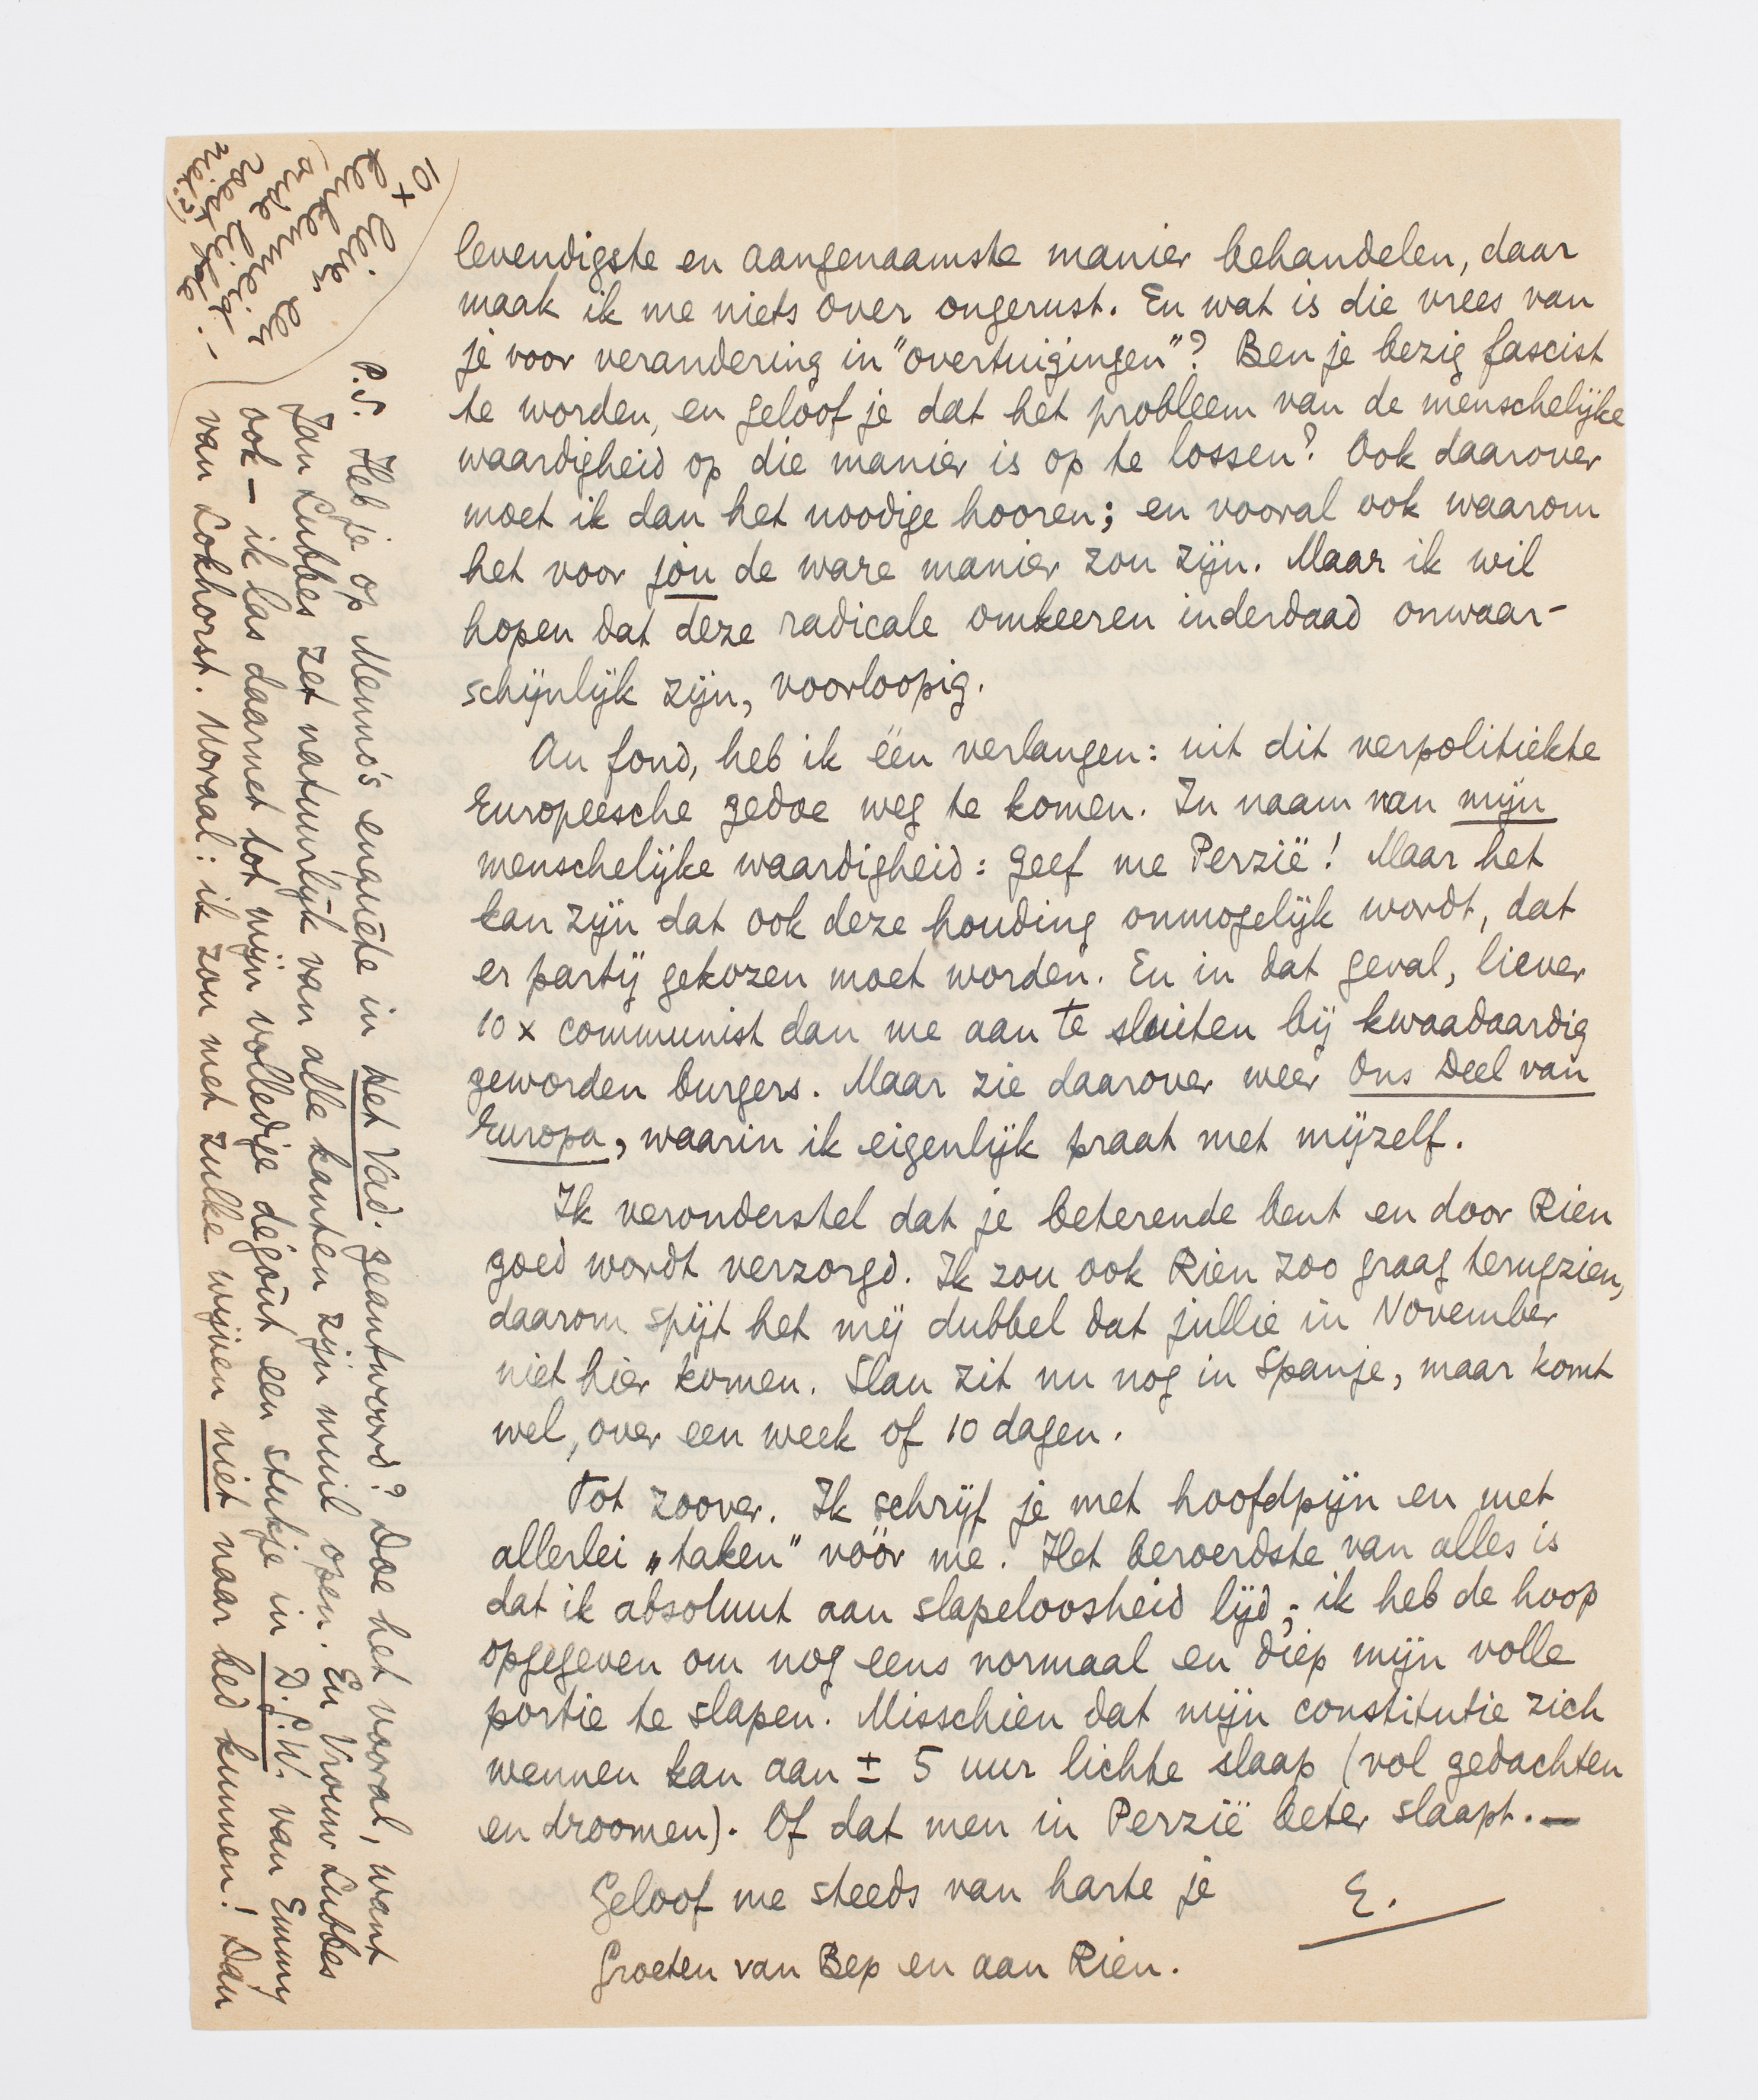 levendigste en aangenaamste manier behandelen, daar
maak ik me niets over ongerust. En wat is die vrees van
je voor verandering in "overtuigingen"? Ben je bezig fascist
te worden, en geloof je dat het probleem van de menschelijke
waardigheid op die manier is op te lossen? Ook daarover
moet ik dan het noodige hooren; en vooral ook waarom
het voor jóu de ware manier zou zijn. Maar ik wil
hopen dat deze radicale omkeeren inderdaad onwaar-
schijnlijk zijn, voorloopig.
Au fond, heb ik één verlangen: uit dit verpolitiekte
Europeesche gedoe weg te komen. In naam van mijn
menschelijke waardigheid: geef me Perzië! Maar het
kan zijn dat ook deze houding onmogelijk wordt, dat
er partij gekozen moet worden. En in dat geval, liever
10 x communist dan me aan te sluiten bij kwaadaardig
geworden burgers. Maar zie daarover weer Ons Deel van
Europa, waarin ik eigenlijk praat met mijzelf.
Ik veronderstel dat je beterende bent en door Rien
goed wordt verzorgd. Ik zou ook Rien zoo graag terugzien,
daarom spijt het mij dubbel dat jullie in November
niet hier komen. Slau zit nu nog in Spanje, maar komt
wel, over een week of 10 dagen.
Tot zoover. Ik schrijf je met hoofdpijn en met
allerlei „taken" vóór me. Het beroerdste van alles is
dat ik absoluut aan slapeloosheid lijd; ik heb de hoop
opgegeven om nog eens normaal en diep mijn volle
portie te slapen. Misschien dat mijn constitutie zich
wennen kan aan ± 5 uur lichte slaap (vol gedachten
en droomen). Of dat men in Perzië beter slaapt.—
Geloof me steeds van harte je
E.
Groeten van Bep en aan Rien.
P.S. Heb je op Menno's enquête in Het Vad. geantwoord? Doe het vooral, want
Jan Lubbes zet natuurlijk van alle kanten zijn muil open. En Vrouw Lubbes
ook – ik las daarnet tot mijn volledige dégoût een stukje in D.G.W. van Emmy
van Lokhorst. Moraal: ik zou met zulke wijven niet naar bed kunnen! Dan
10 x liever